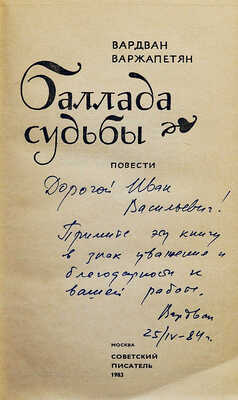 ВАРДВАН
ВАРЖАПЕТЯН
Баллада
судьбы
ПОВЕСТИ
Дорогой Иван
Васильевич!
Примите эту книгу
в знак уважения и
благодарности к
вашей работе.
Вардван
25/IV-84 г.
МОСКВА
СОВЕТСКИЙ
ПИСАТЕЛЬ
1983